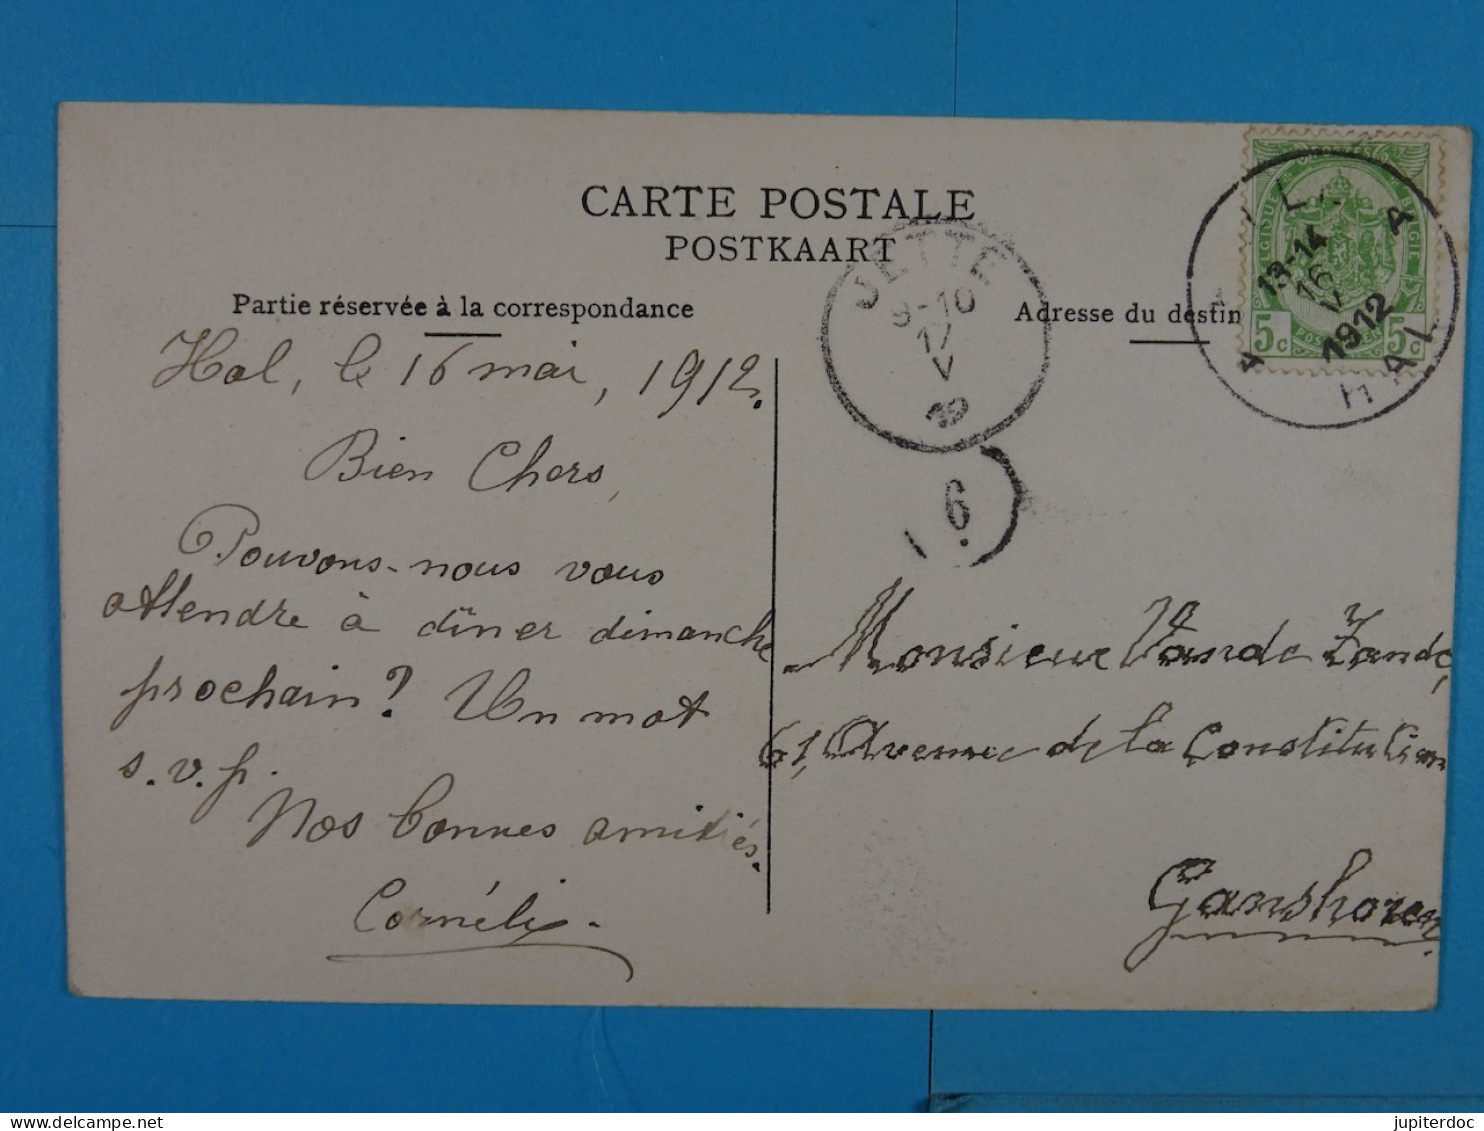 CARTE POSTALE
POSTKAART
Partie réservée à la correspondance
Adresse du destin
Hal, le 16 mai, 1912.
Bien Chers,
Pouvons-nous vous
attendre à dîner dimanche
prochain? Un mot
s.v.p.
Nos bonnes amitiés.
Cornélis.
JETTE
9-10
17
V
6
13-14
16
V
1912
HAL
A
5c
5c
BELGIE
Monsieur Vande Zande,
61, Avenue de la Constitution
Ganshoren
delcampe.net
jupiterdoc